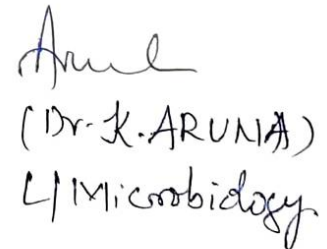 Arul
(Dr. K. ARUNA)
L/Microbiology.